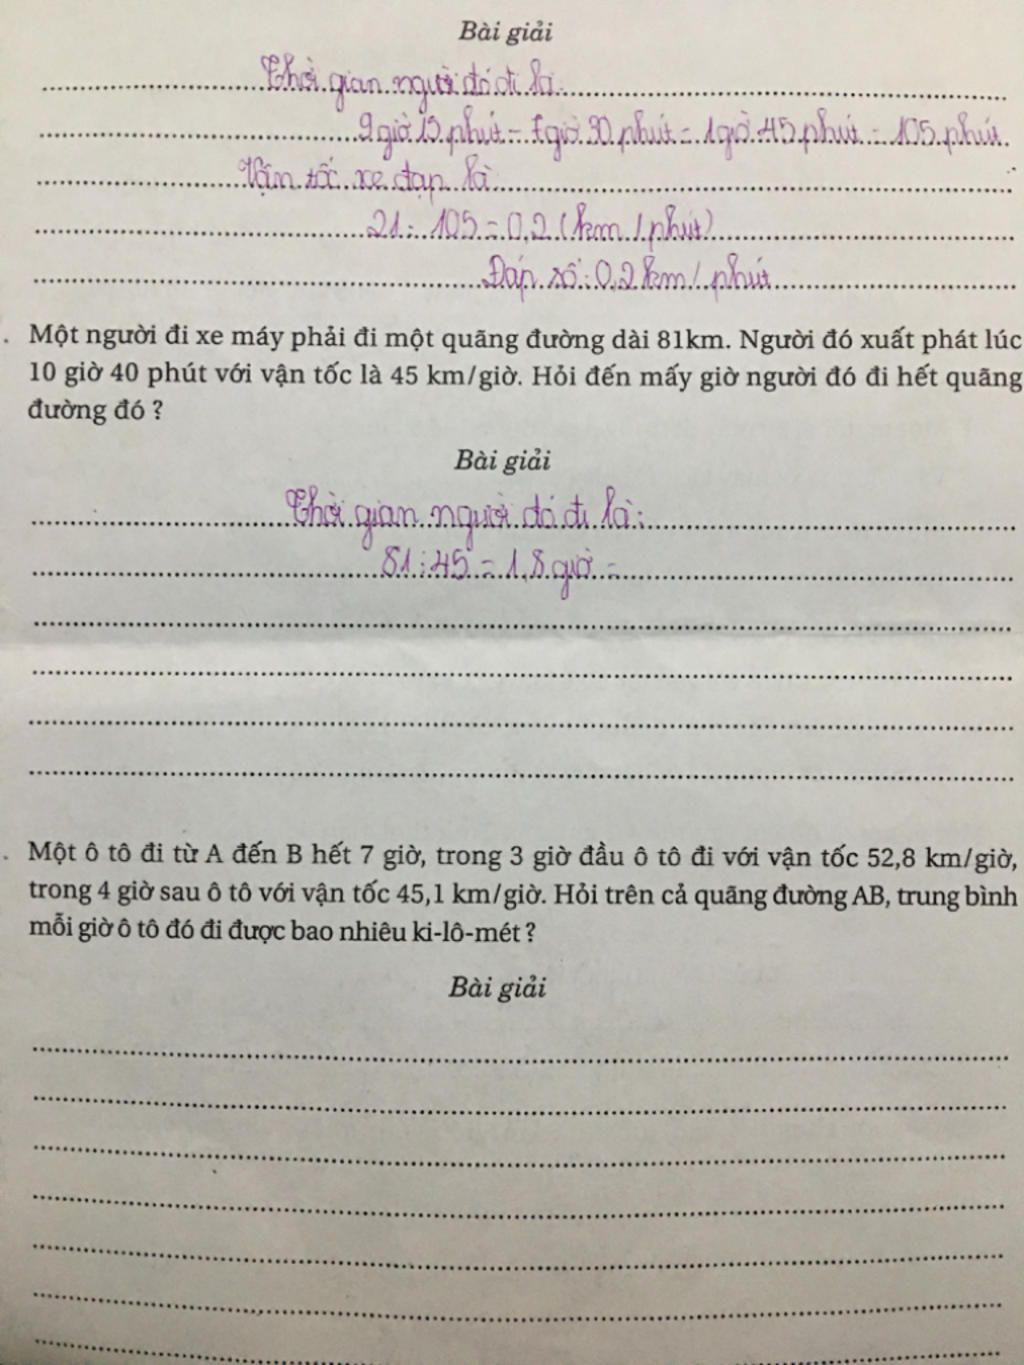 Bài giải
Thời gian người đó đi là:
9 giờ 15 phút - 7 giờ 30 phút = 1 giờ 45 phút = 105 phút
Vận tốc xe đạp là
21 : 105 = 0,2 (km / phút)
Đáp số : 0,2 km / phút
. Một người đi xe máy phải đi một quãng đường dài 81km. Người đó xuất phát lúc
10 giờ 40 phút với vận tốc là 45 km/giờ. Hỏi đến mấy giờ người đó đi hết quãng
đường đó ?
Bài giải
Thời gian người đó đi là:
81 : 45 = 1,8 giờ =
. Một ô tô đi từ A đến B hết 7 giờ, trong 3 giờ đầu ô tô đi với vận tốc 52,8 km/giờ,
trong 4 giờ sau ô tô với vận tốc 45,1 km/giờ. Hỏi trên cả quãng đường AB, trung bình
mỗi giờ ô tô đó đi được bao nhiêu ki-lô-mét ?
Bài giải